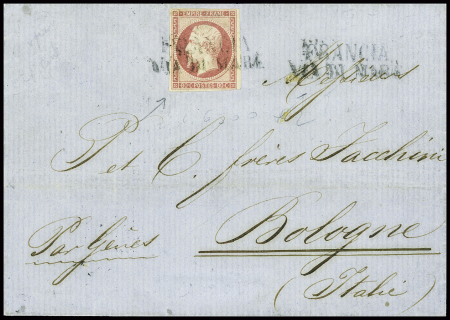 EMPIRE FRANC.
FRANCIA
VIA DI MARE
80 C. POSTES 80 C.
FRANCIA
VIA DI MARE
P et C. frères Jacchini
Par Gênes
Bologne
(Italie)